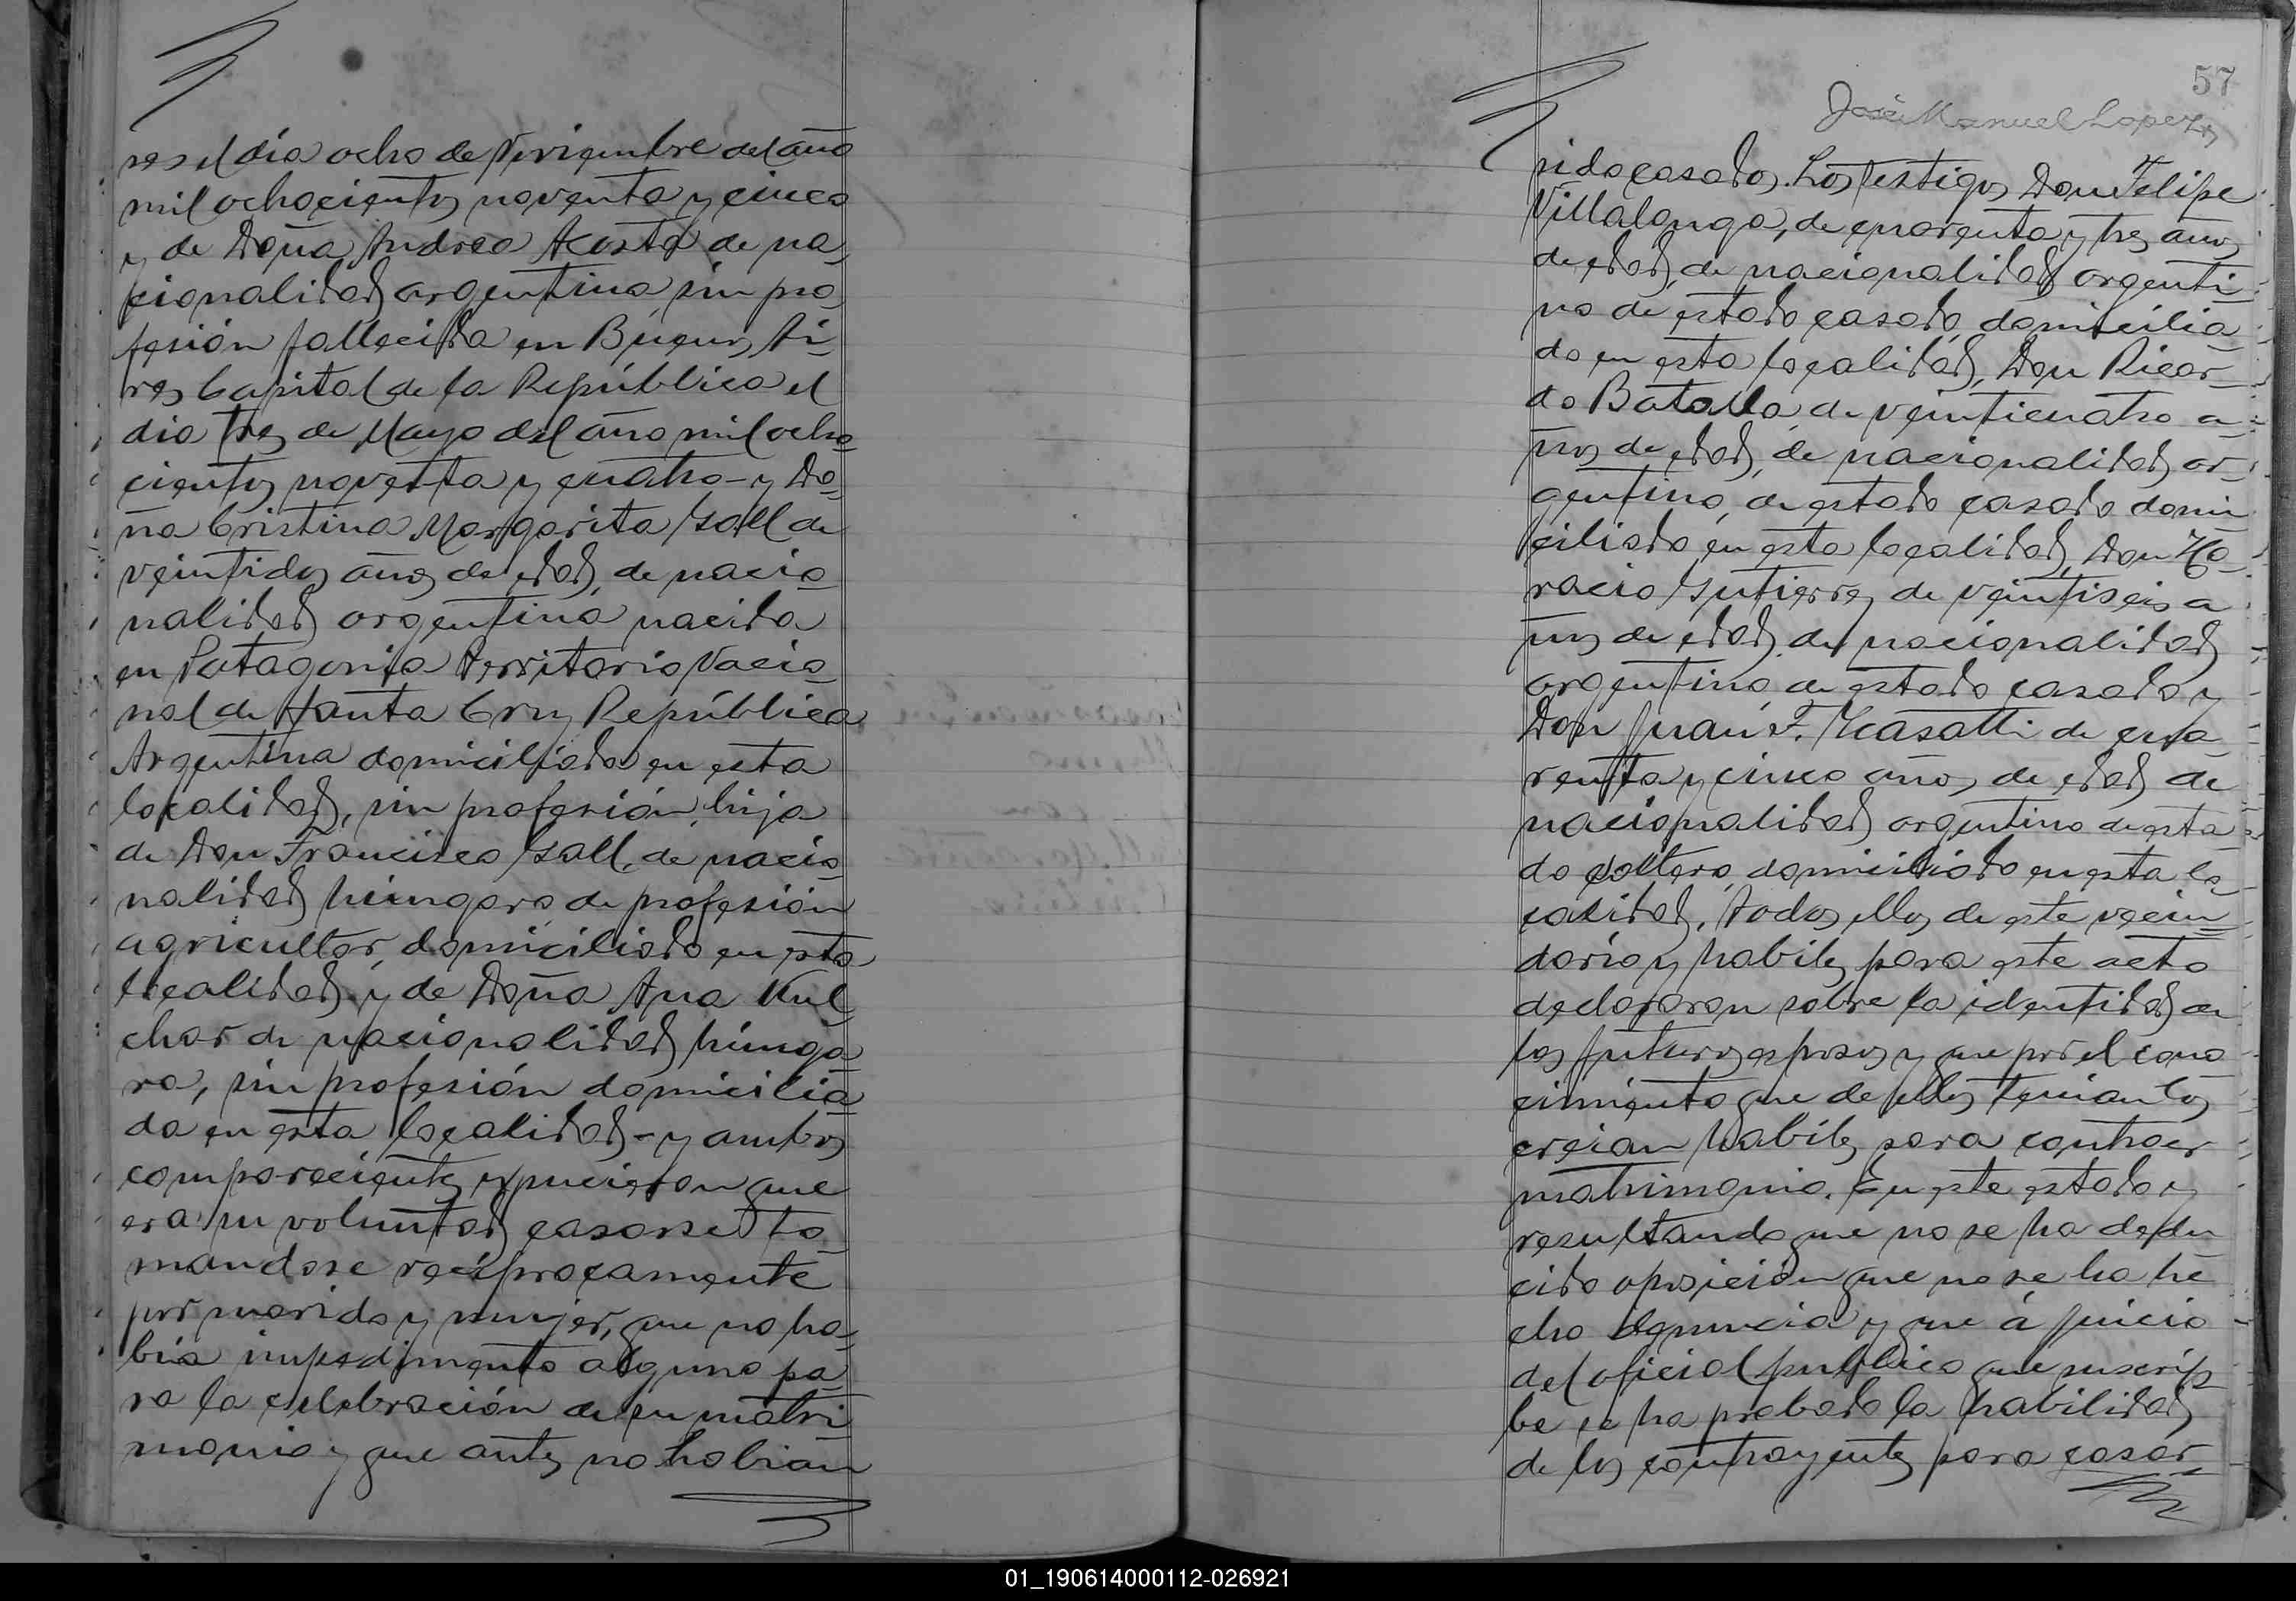 res el día ocho de Noviembre del año
mil ochocientos noventa y cinco
y de Doña Andrea Acosta de na
cionalidad argentina sin pro
fesión fallecida en Buenos Ai-
res Capital de la República el
dia tres de Mayo del año mil ocho
cientos noventa y cuatro - y Do-
ña Cristina Margarita Gall de
veintidos años de edad, de nacio
nalidad argentina nacida
en Patagonia Territorio Nacio
nal de Santa Cruz República
Argentina domiciliada en esta
localidad, sin profesión, hija
de Don Francisco Gall, de nacio
nalidad húngara de profesión
agricultor, domiciliado en esta
localidad y de Doña Ana Kul
char de nacionalidad húnga
ra, sin profesión domicilia
da en esta localidad - y ambos
comparecientes expucieron que
era su voluntad casarse to
mandose recíprocamente
por marido y mujer, que no ha-
bía impedimento alguno pa
ra la celebración de su matri
monio y que antes no habian
57
José Manuel Lopez
sido casados. Los testigos Don Felipe
Villalonga, de cuarenta y tres años
de edad, de nacionalidad argenti
no de estado casado, domicilia
do en esta localidad, Don Ricar-
do Batalla, de veinticuatro a-
ños de edad, de nacionalidad ar-
gentino, de estado casado domi
ciliado en esta localidad, Don Ho-
racio Gutierrez de veintiseis a
ños de edad de nacionalidad
argentino, de estado casado y
Don Juan F. de cua
renta y cinco años de edad de
nacionalidad argentino de esta
do soltero, domiciliado en esta lo
calidad, todos ellos de este vecin
dario y habiles para este acto
declararon sobre la identidad de
los futuros esposos y que por el cono
cimiento que de ellos tenian los
creian habiles para contraer
matrimonio. En este estado y
resultando que no se ha dedu
cido oposición que no se ha he
cho denuncia y que á juicio
del oficial publico que suscri
be se ha probado la habilidad
de los contrayentes para casar
01_190614000112-026921